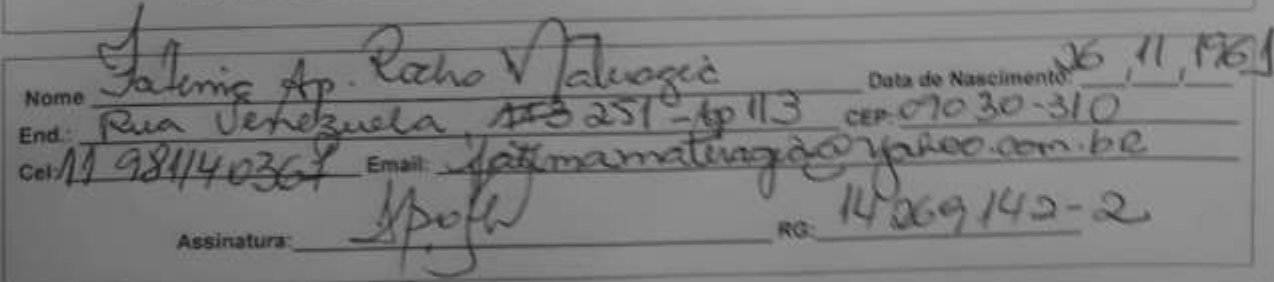 Nome Fatima Ap. Rocha Data de Nascimento 26, 11, 1961
End.: Rua Venezuela, 251 - Ap 113 CEP: 07030-310
Cel: 11 981140367 Email: @yahoo.com.br
Assinatura: RG: 14269142-2